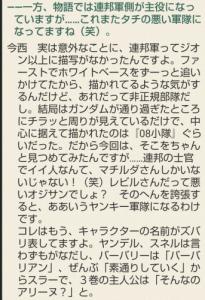 ――一方、物語では連邦軍側が主役になっ
ていますが……これまたタチの悪い軍隊に
なってますね（笑）。
今西　実は意外なことに、連邦軍ってジオ
ン以上に描写がなかったんですよ。ファ
ーストでホワイトベースをずーっと追い
かけてたから、描かれてるような気がす
るんだけど、あれだって非正規部隊だ
し。結局はガンダムが通り過ぎたところ
にチラッと周りが見えているだけで、中
心に据えて描かれたのは『08小隊』ぐら
いだった。だから今回は、そこをちゃん
と見つめてみたんですが……連邦の士官
でイイ人なんて、マチルダさんしかいな
いじゃない！（笑）レビルさんだって悪
いオジサンでしょ？　そのへんを誇張す
ると、ああいうヤンキー軍隊になるわけ
です。
コレはもう、キャラクターの名前がズバ
リ表してますよ。ヤンデル、スネルは言
わずもがなだし、バーバリーは「バーバ
リアン」、ぜんぶ「素通りしていく」か
らスラーで、３巻の主人公は「そんなの
アリーヌ？」と。